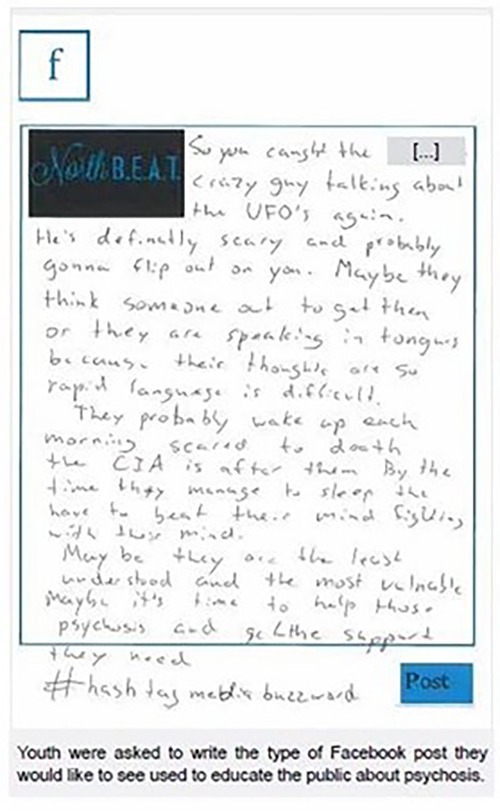 f
North B.E.A.T.
So you caught the [...]
crazy guy talking about
the UFO's again.
He's definatly scary and probably
gonna flip out on you. Maybe they
think someone out to get then
or they are speaking in tongues
because their thoughts are so
rapid language is difficult.
They probably wake up each
morning scared to death
the CIA is after them By the
time they manage to sleep the
have to beat their mind fighting
with their mind.
May be they are the least
understood and the most vulnable
Maybe it's time to help those
psychosis and get the support
they need
#hash tag media buzzword
Post
Youth were asked to write the type of Facebook post they
would like to see used to educate the public about psychosis.